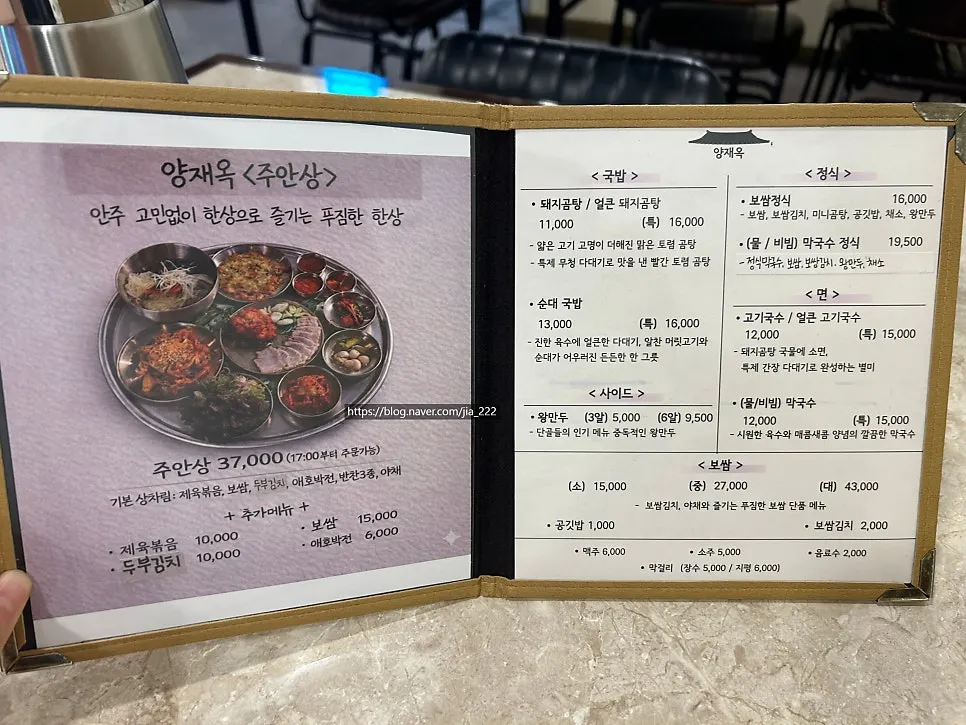 양재옥 <주안상>
안주 고민없이 한상으로 즐기는 푸짐한 한상
https://blog.naver.com/jia_222
주안상 37,000 (17:00부터 주문가능)
기본 상차림: 제육볶음, 보쌈, 두부김치, 애호박전, 반찬3종, 야채
+ 추가메뉴 +
· 제육볶음 10,000
· 보쌈 15,000
· 두부김치 10,000
· 애호박전 6,000
양재옥
< 국밥 >
• 돼지곰탕 / 얼큰 돼지곰탕
11,000 (특) 16,000
- 얇은 고기 고명이 더해진 맑은 토렴 곰탕
- 특제 무청 다대기로 맛을 낸 빨간 토렴 곰탕
• 순대 국밥
13,000 (특) 16,000
- 진한 육수에 얼큰한 다대기, 알찬 머릿고기와
순대가 어우러진 든든한 한 그릇
< 사이드 >
• 왕만두 (3알) 5,000 (6알) 9,500
- 단골들의 인기 메뉴 중독적인 왕만두
< 정식 >
• 보쌈정식 16,000
- 보쌈, 보쌈김치, 미니곰탕, 공깃밥, 채소, 왕만두
• (물 / 비빔) 막국수 정식 19,500
- 정식막국수, 보쌈, 보쌈김치, 왕만두, 채소
< 면 >
• 고기국수 / 얼큰 고기국수
12,000 (특) 15,000
- 돼지곰탕 국물에 소면,
특제 간장 다대기로 완성하는 별미
• (물/비빔) 막국수
12,000 (특) 15,000
- 시원한 육수와 매콤새콤 양념의 깔끔한 막국수
< 보쌈 >
(소) 15,000 (중) 27,000 (대) 43,000
- 보쌈김치, 야채와 즐기는 푸짐한 보쌈 단품 메뉴
• 공깃밥 1,000 • 보쌈김치 2,000
• 맥주 6,000 • 소주 5,000 • 음료수 2,000
• 막걸리 (장수 5,000 / 지평 6,000)